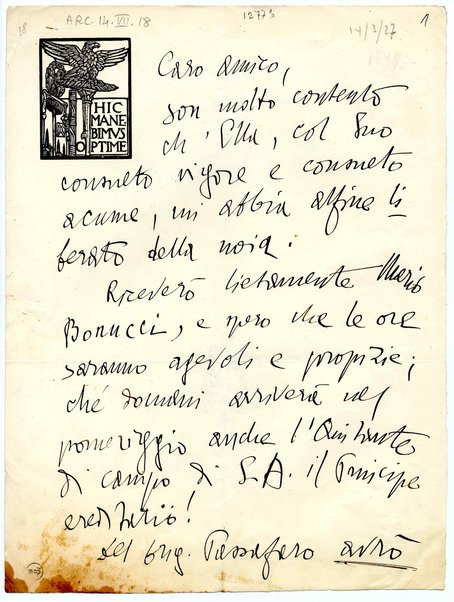 18 ARC. 14. VII. 18 12773 1
14/3/27
HIC
MANE
BIMVS
OPTIME
Caro amico,
son molto contento
ch'Ella, col Suo
consueto vigore e consueto
acume, mi abbia alfine li
berato della noia.
Riceverò lietamente Mario
Bonucci, e spero che le ore
saranno agevoli e propizie;
ché domani arriverà nel
pomeriggio anche l'Aiutante
di campo di S.A. il Principe
ereditario!
Del brig. Passafaro avrò